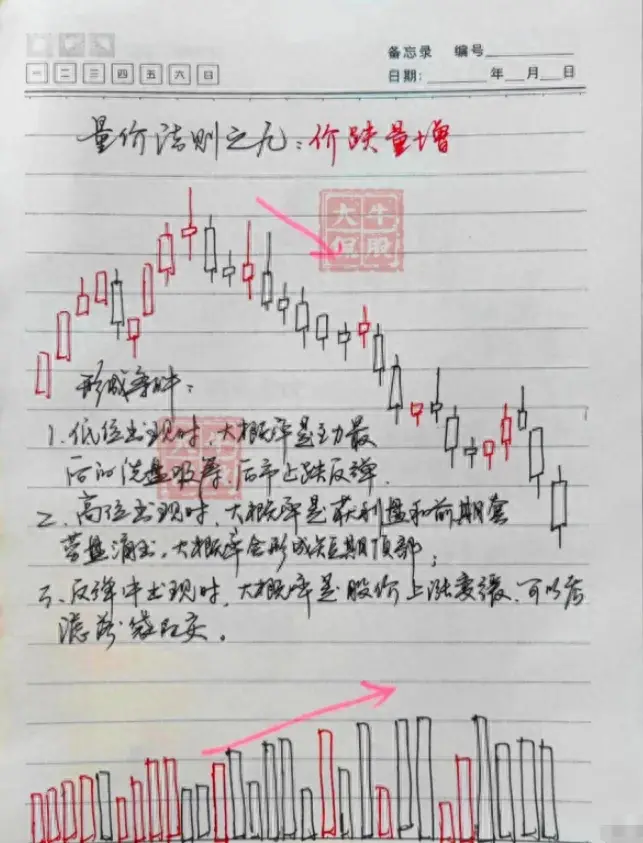 备忘录 编号
一 二 三 四 五 六 日
日期: 年 月 日
量价法则之九：价跌量增
大牛
侃股
形成条件：
1.低位出现时，大概率是主力最
后的洗盘吸筹，后市止跌反弹.
2、高位出现时，大概率是获利盘和前期套
劳盘涌出，大概率会形成短期顶部；
3、反弹中出现时，大概率是股价上涨变缓，可以考
虑落袋